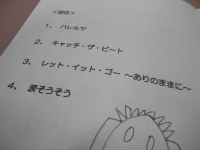 <曲目>
1、 ハレルヤ
2、 キャッチ・ザ・ビート
3、 レット・イット・ゴー ～ありのままに～
4、 涙そうそう